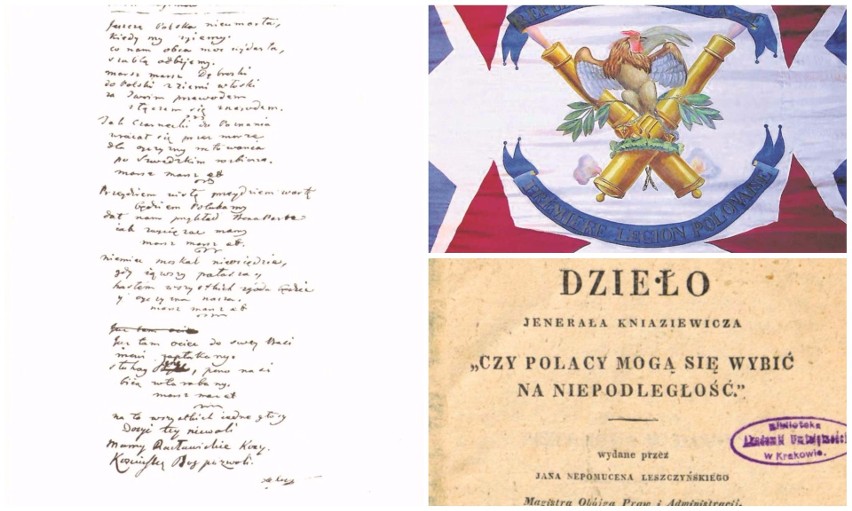 Jeszcze Polska nieumarła,
kiedy my żyjemy.
co nam obca moc wydarła,
szablą odbijemy.
marsz marsz Dąbroski
do Polski z ziemi włoski
za Twoim przewodem
złączem się z narodem.
Jak Czarnecki do Poznania
wracał się przez morze
dla oyczyzny ratowania
po Szwedzkim rozbiorze.
marsz marsz et
Przejdziem wisłę przejdziem wartę
będziem Polakamy
dał nam przykład Bonaparte
jak zwyciężac mamy
marsz marsz et.
niemiec moskal nieosiędzie,
gdy jąwszy pałasza,
hasłem wszystkich zgoda będzie
y oyczyzna nasza.
marsz marsz et
Już tam
Już tam ociec do swey Basi
mówi zapłakany.
słuchay, pono nasi
biją w tarabany.
marsz marsz et
na to wszystkich jedne głosy
Dosyć tey niewoli
Mamy Racławickie Kosy.
Kosciuszkę Bog pozwoli.
PREMIERE LEGION POLONAISE
DZIEŁO
JENERAŁA KNIAZIEWICZA
„CZY POLACY MOGĄ SIĘ WYBIĆ
NA NIEPODLEGŁOŚĆ.”
wydane przez
JANA NEPOMUCENA LESZCZYŃSKIEGO
Magistra Obojga Praw i Administracii.
Biblioteka
Akademii Umiejętności
w Krakowie.